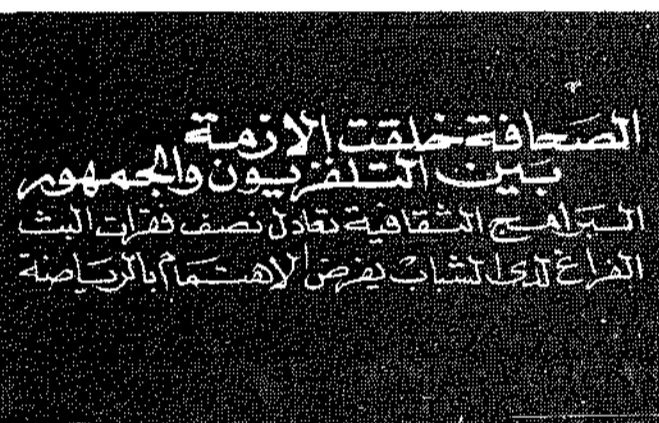 الصحافة خلقت الازمة
بين التلفزيون والجمهور
البرامج الثقافية تعادل نصف فقرات البث
الفراغ لدى الشباب يفرض الاهتمام بالرياضة